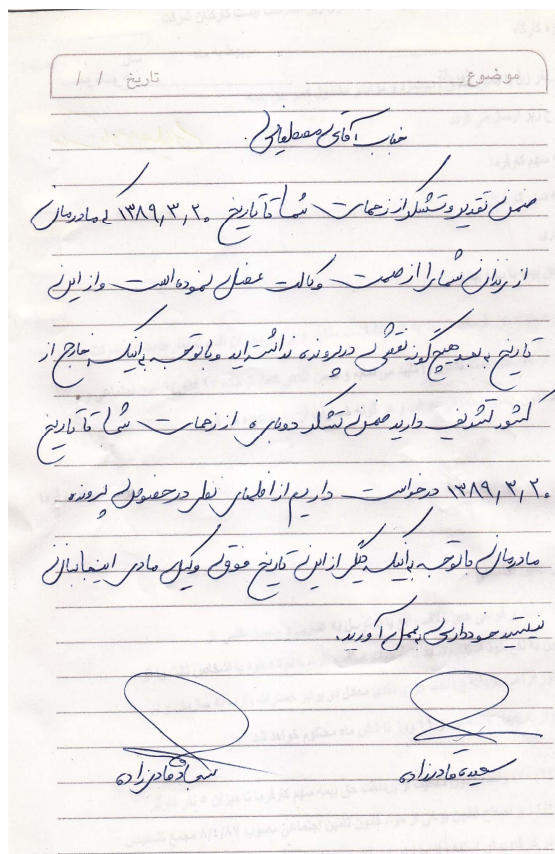 موضوع تاریخ / /
جناب آقای مصطفایی
ضمن تقدیر و تشکر از زحمات شما تا تاریخ ۱۳۸۹٫۳٫۲۰ که مادرمان
از زندان شما را از سمت وکالت عضل نموده است و از این
تاریخ به بعد هیچگونه نقشی در پرونده نداشته‌اند و با توجه به اینکه خارج از
کشور تشریف دارید ضمن تشکر دوباره از زحمات شما تا تاریخ
۱۳۸۹٫۳٫۲۰ درخواست داریم از اظهار نظر در خصوص پرونده
مادرمان با توجه به اینکه دیگر از این تاریخ فوق وکیل مادر اینجانبان
نیستید خودداری بعمل آورید.
سعیده قادرزاده سجاد قادرزاده